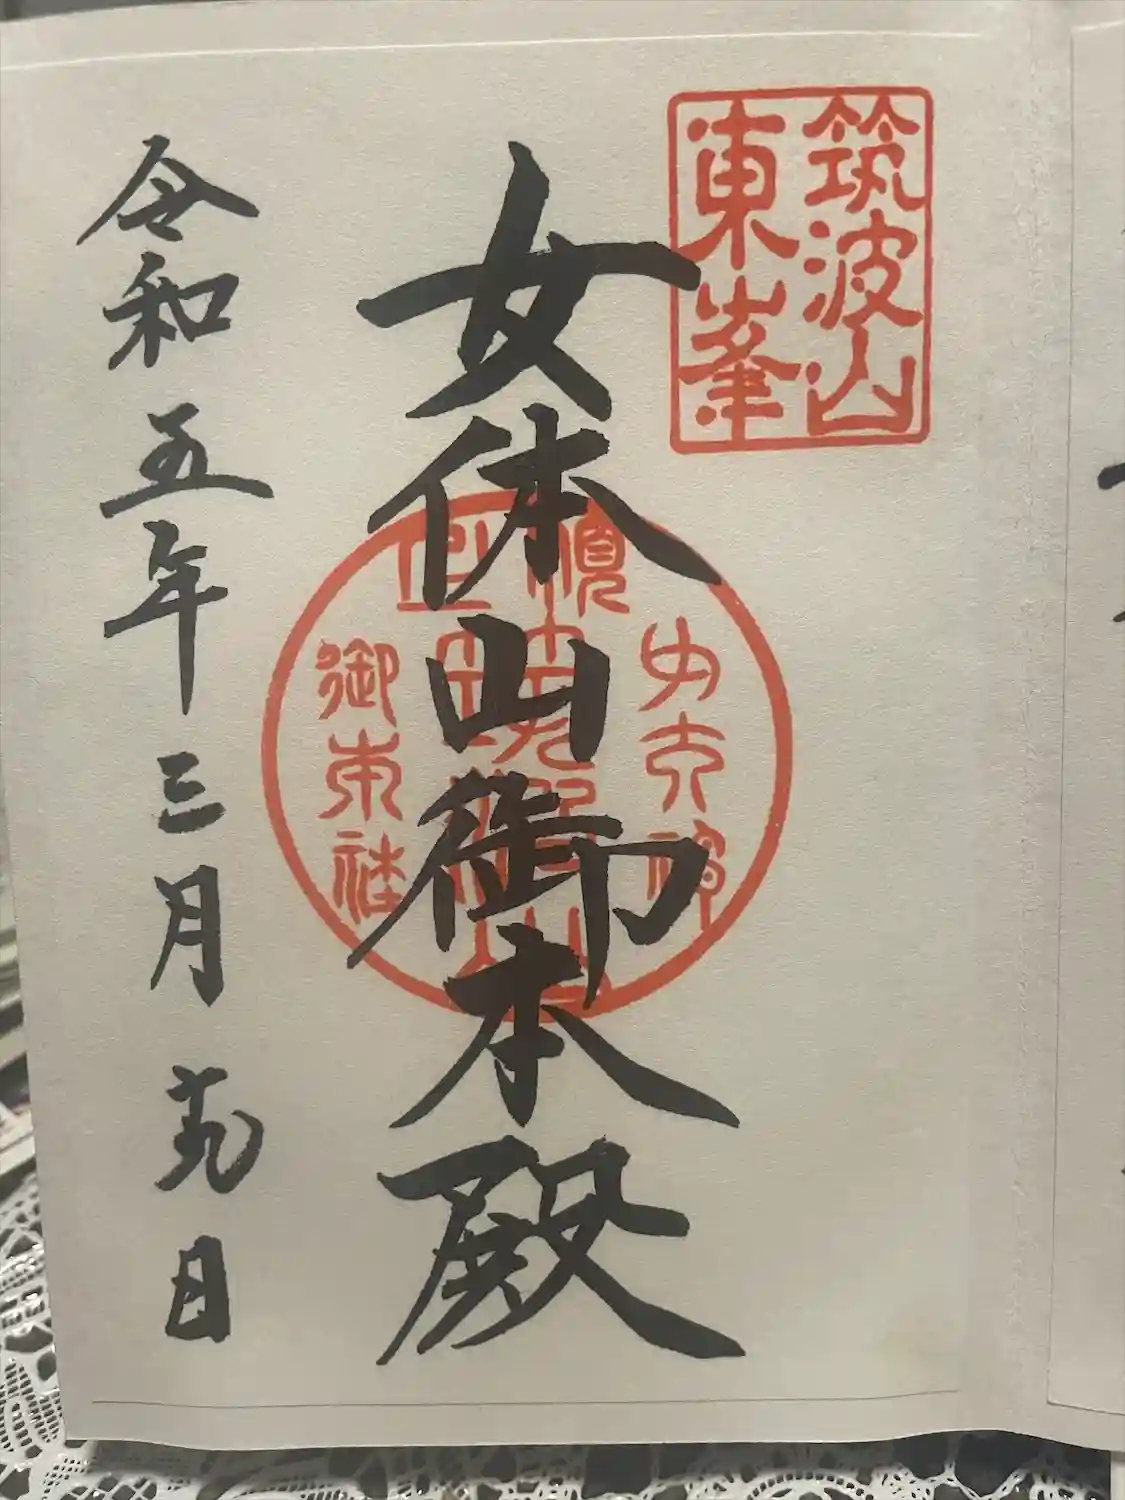 筑波山
東峯
女体山御本殿
令和五年三月十九日
御東社